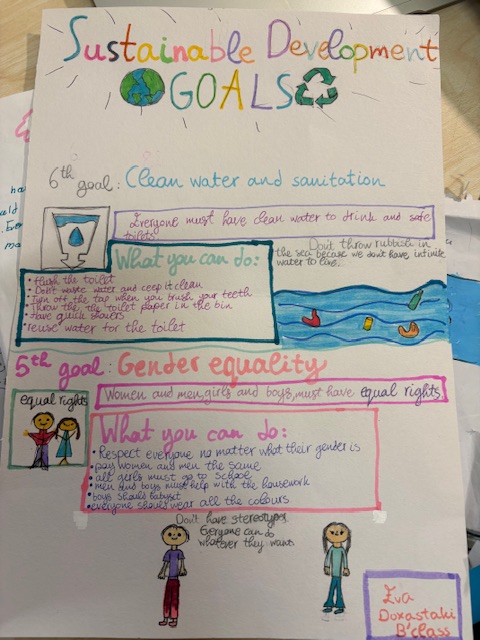 Sustainable Development
GOALS
6th goal: Clean water and sanitation
Everyone must have clean water to drink and safe
toilets.
What you can do:
• flush the toilet
• Don't waste water and keep it clean
• Turn off the tap when you brush your teeth
• Throw the the toilet paper in the bin
• have quick showers
• reuse water for the toilet
Don't throw rubbish in
the sea because we don't have infinite
water to live.
5th goal: Gender equality
Women and men, girls and boys, must have equal rights.
equal rights
What you can do:
• Respect everyone no matter what their gender is
• pay women and men the same
• all girls must go to school
• men and boys must help with the housework
• boys should babysit
• everyone should wear all the colours
Don't have stereotypes.
Everyone can do
whatever they want
Eva
Doxastaki
B'class